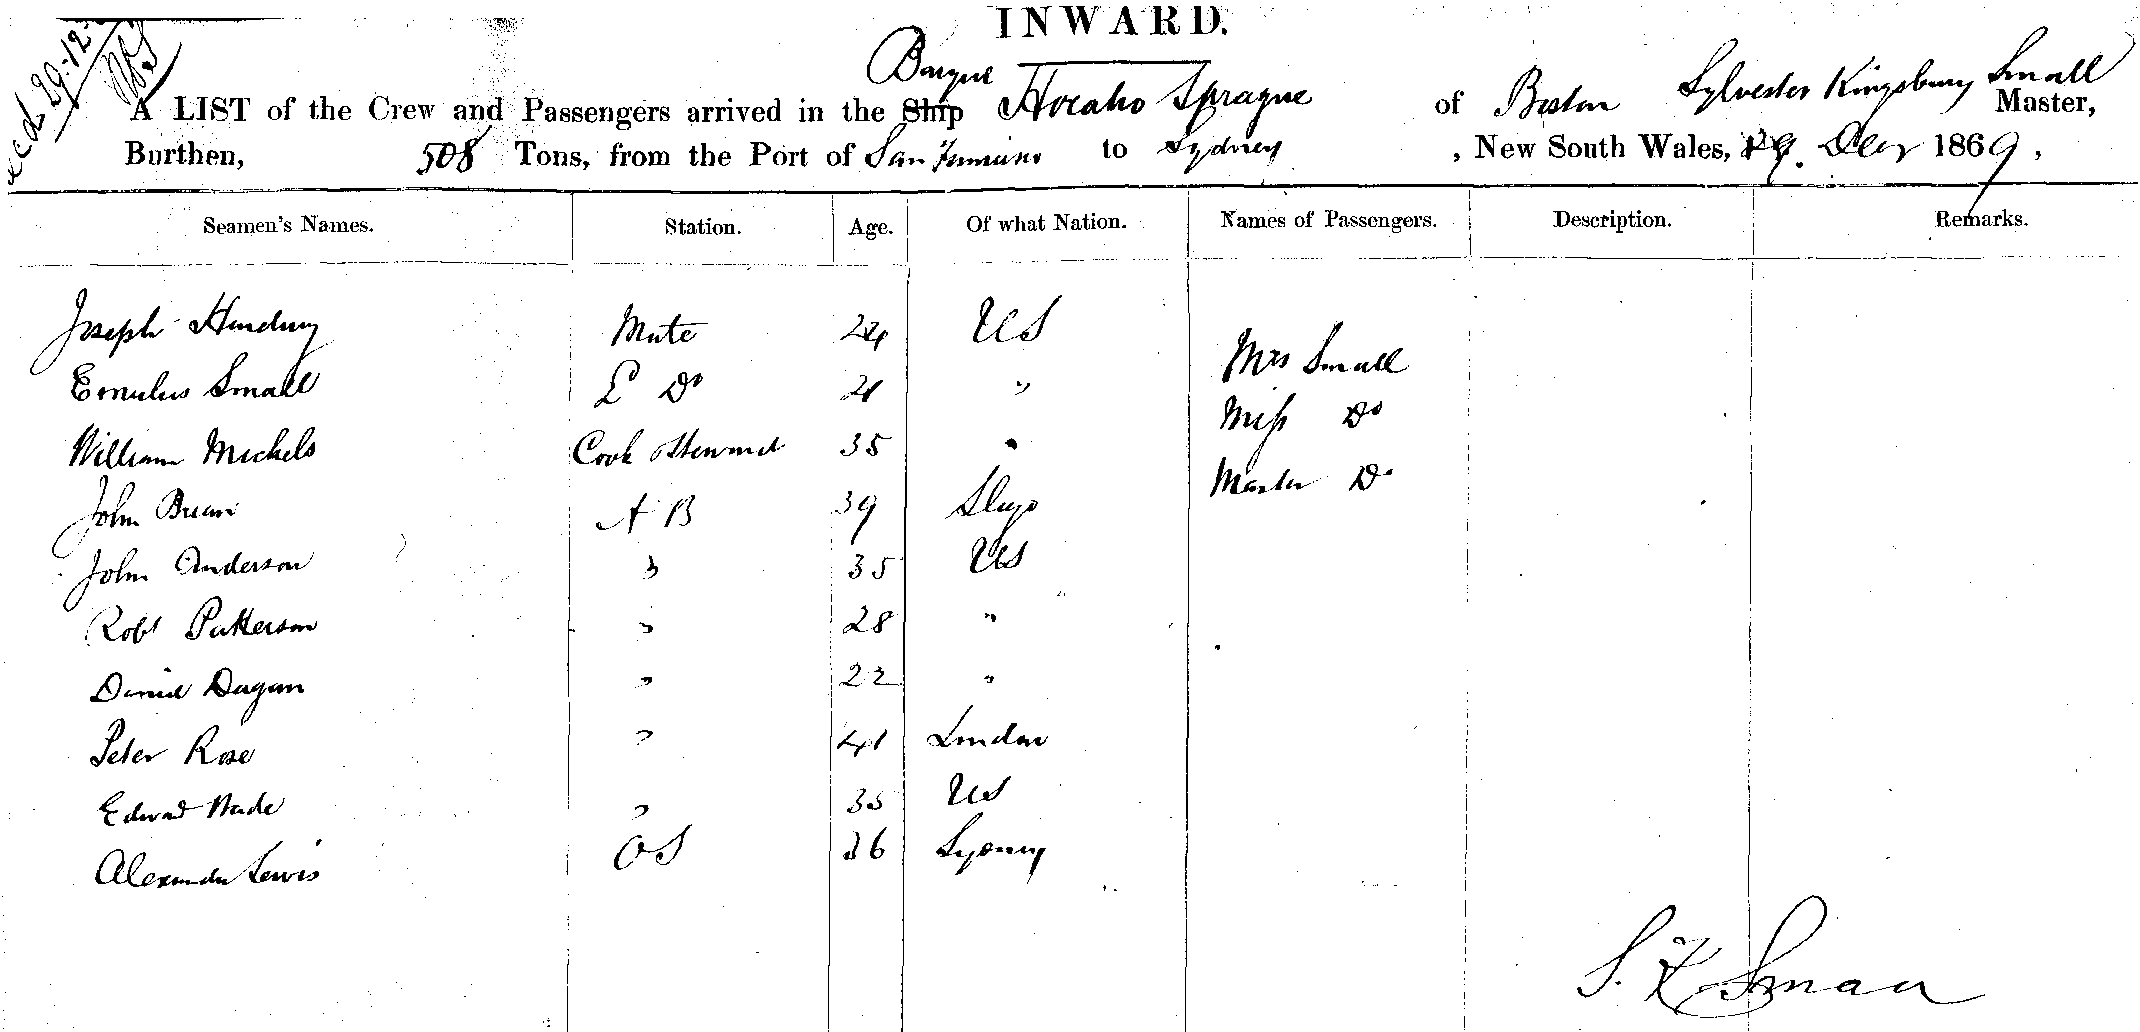 recd 29-12-
INWARD.
Barque
A LIST of the Crew and Passengers arrived in the Ship Horatio Sprague of Boston Sylvester Kingsbury Small Master,
Burthen, 508 Tons, from the Port of San Francisco to Sydney, New South Wales, 29. Decr 1869,
Seamen's Names. Station. Age. Of what Nation. Names of Passengers. Description. Remarks.
Joseph Mate 24 US
Mrs Small
Small 2 Do 21 "
Miss Do
William Michels Cook & Steward 35 "
Master Do
John A B 39 Sligo
John Anderson " 35 US
Robt Patterson " 28 "
Daniel Dugan " 22 "
Peter Rose " 41 London
Edward Wade " 35 US
Alexander Lewis OS Sydney
S. K Small